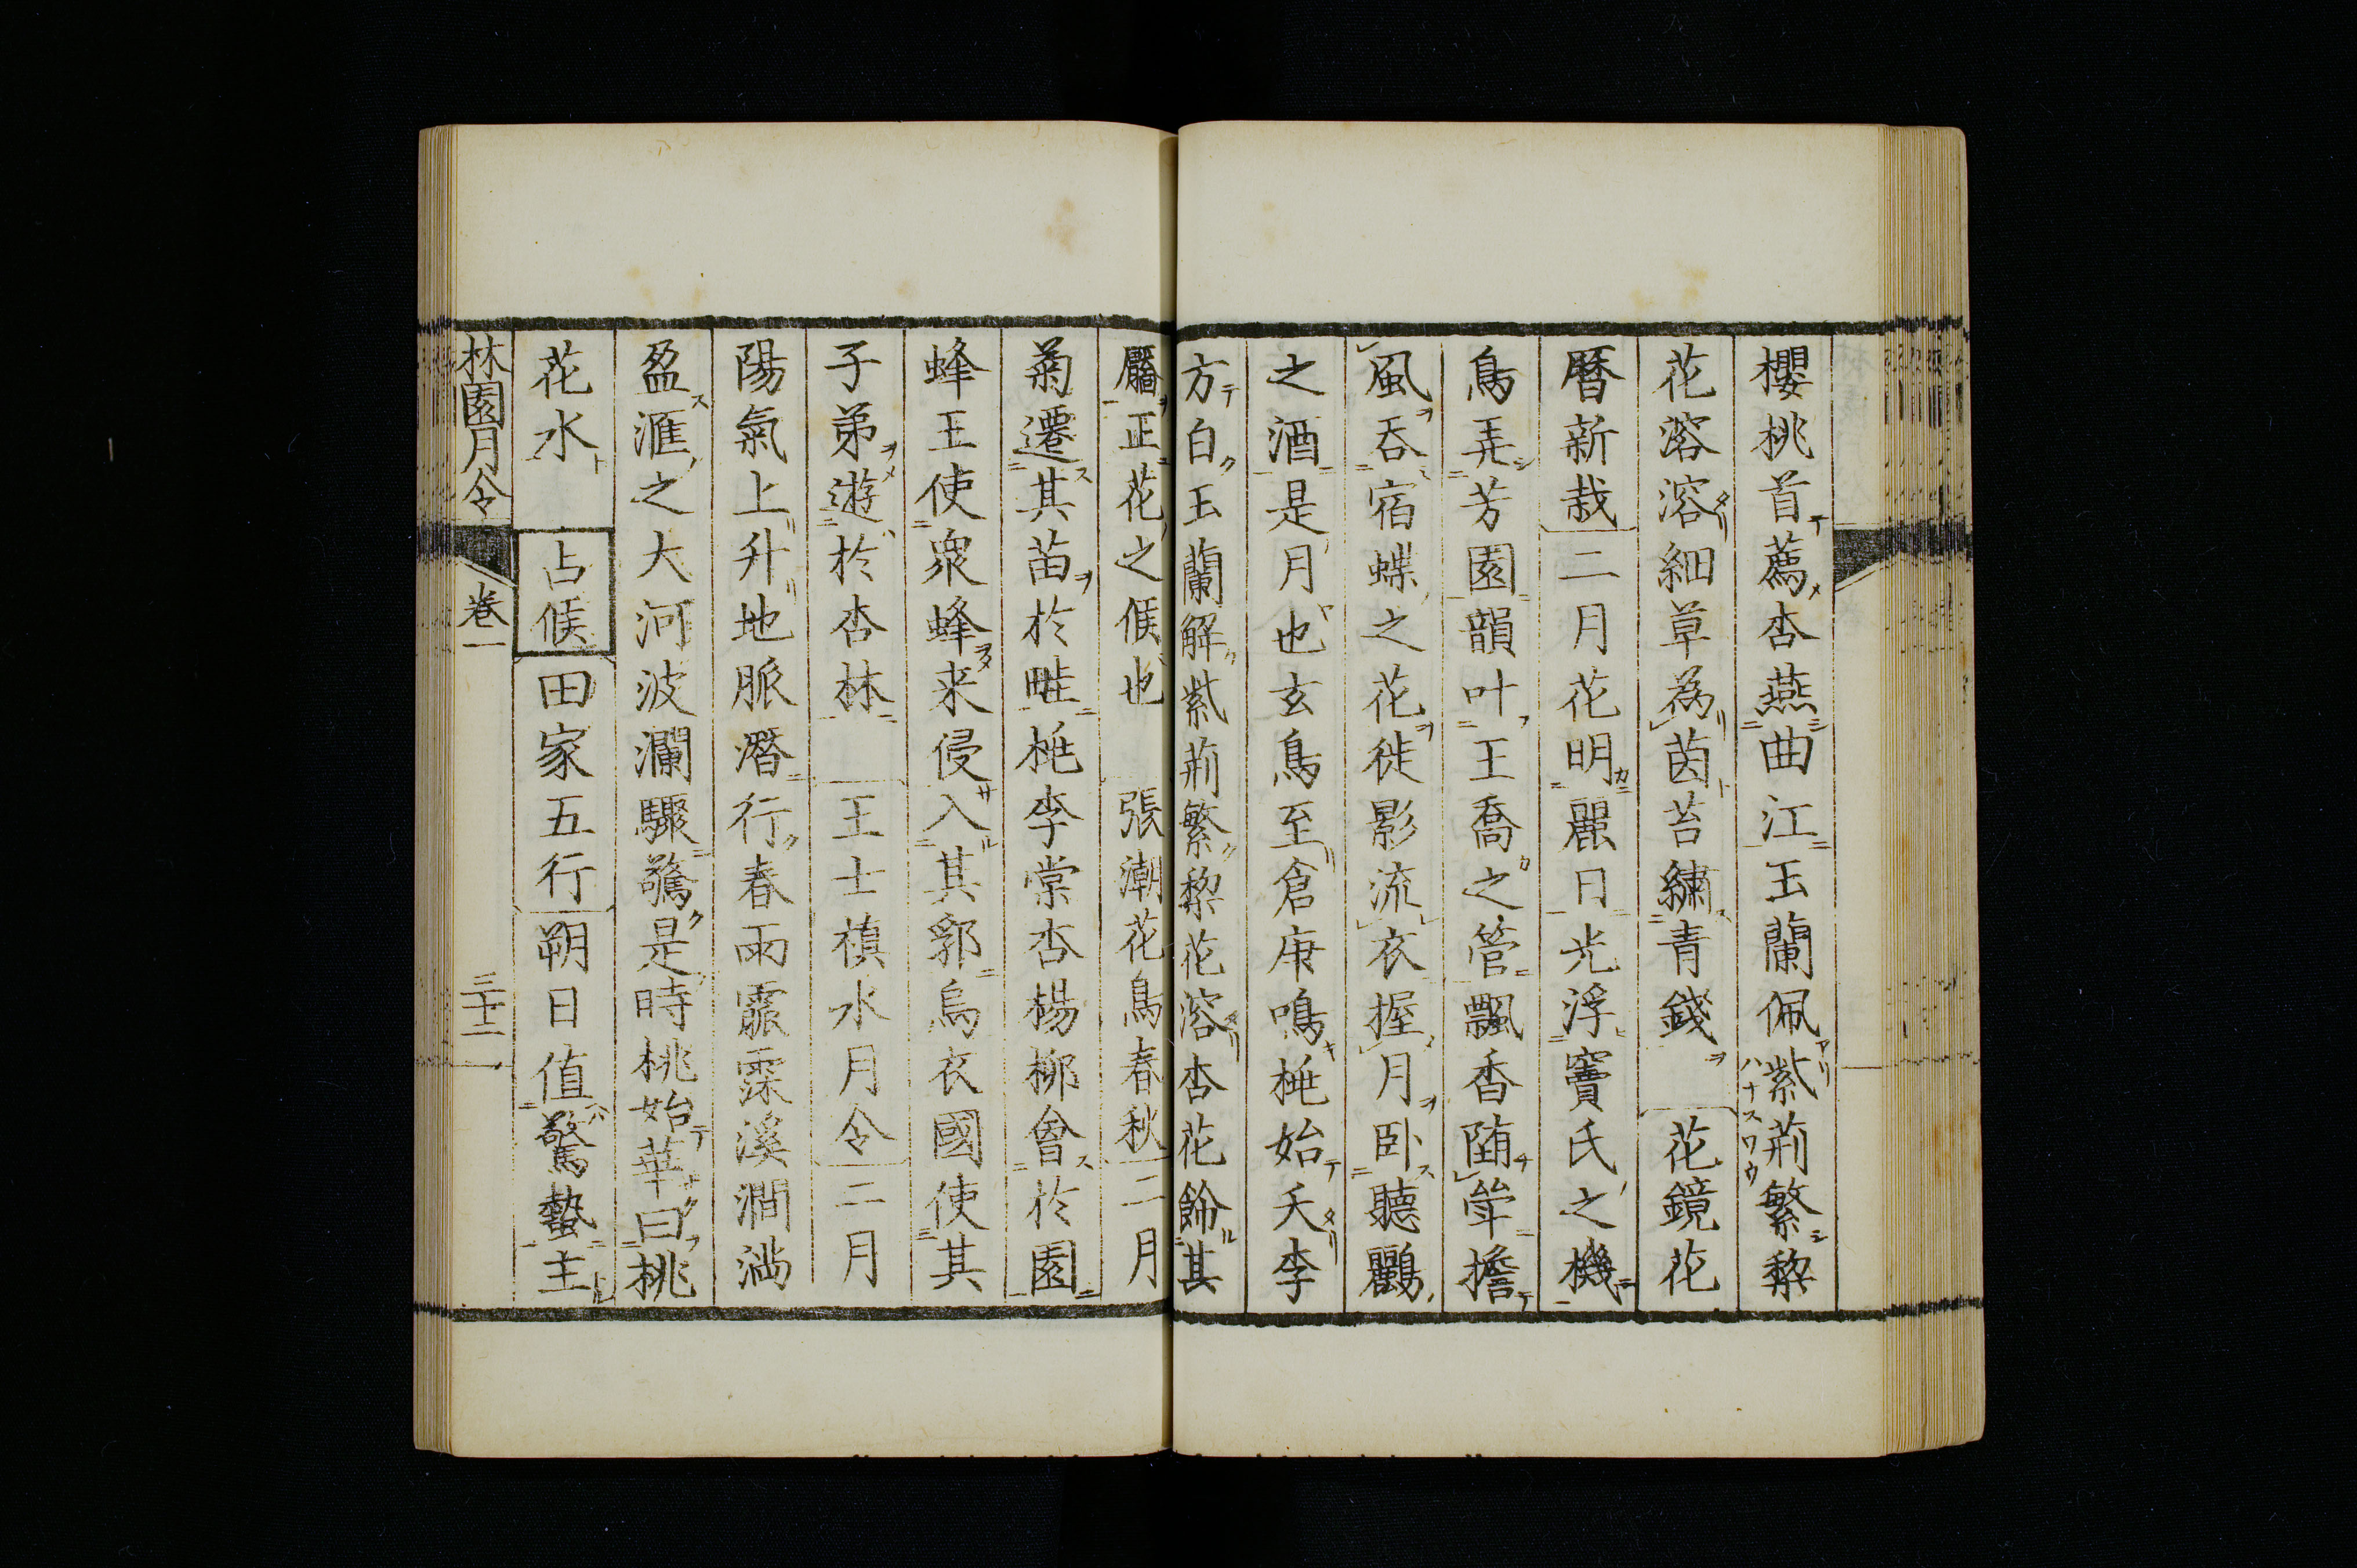 櫻桃首薦杏燕曲江玉蘭佩紫荊繁黎
花溶溶細草為茵苔繡青錢 花鏡花
暦新栽二月花明麗日光浮竇氏之機
鳥弄芳園韻叶王喬之管飄香陌辇擔
風吞宿蝶之花徙影流衣握月卧聽鸝
之酒是月也玄鳥至倉庚鳴桃始夭李
方白玉蘭解紫荊繁黎花溶杏花飾其
靨正花之候也 張潮花鳥春秋二月
菊遷其苗於畦桃李棠杏楊柳會於園
蜂王使衆蜂来侵入其郛烏衣國使其
子弟遊於杏林 王士禎水月令二月
陽氣上升地脈潛行春雨霡霂溪澗満
盈滙之大河波瀾驟驚是時桃始華曰桃
花水 占候 田家五行朔日值驚蟄主
林園月令 卷一 三十二